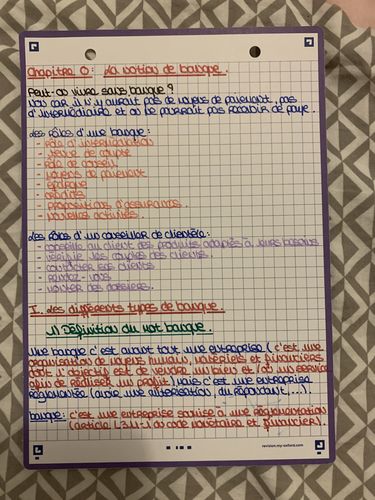 Chapitre 0 : La notion de banque.
Peut-on vivre sans banque ?
Non car il n'y aurait pas de moyens de paiement, pas
d'intermédiaire et on ne pourrait pas recevoir de paye.
Les rôles d'une banque :
- rôle d'intermédiation
- tenue de compte
- rôle de conseil
- moyens de paiement
- épargne
- crédits
- propositions d'assurances.
- nouvelles activités.
Les rôles d'un conseiller de clientèle :
- conseille au client des produits adaptés à leurs besoins
- vérifie les comptes des clients.
- contacter ses clients
- rendez-vous
- monter des dossiers.
I. Les différents types de banque.
1) Définition du mot banque.
Une banque c'est avant tout une entreprise (c'est une
organisation de moyens humain, matériels et financiers
dont l'objectif est de vendre un bien et/ou un service
afin de réaliser un profit) mais c'est une entreprise
réglementée (avoir une autorisation, du répondant, ...).
banque : c'est une entreprise soumise à une réglementation
(article L311-1 du code monétaire et financier).
revision.my-oxford.com